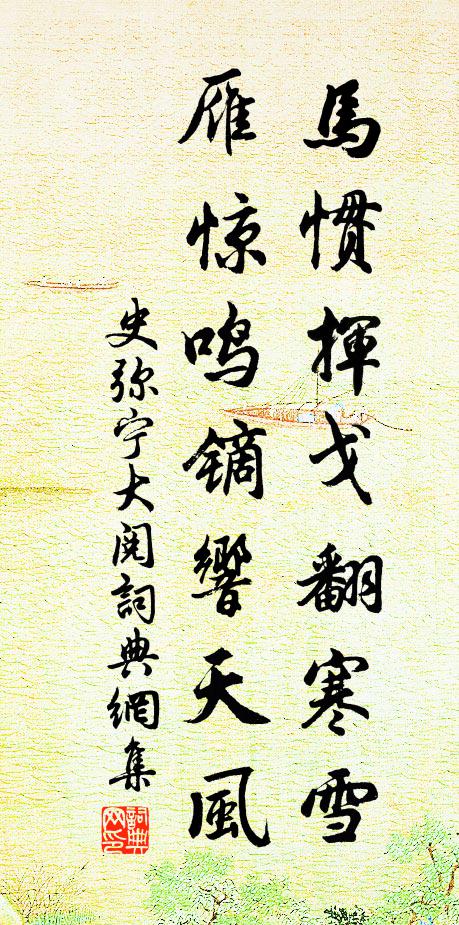 馬慣揮戈翻寒雪
雁惊鸣镝響天風
史弥宁大阅詞典網集
詞典网印